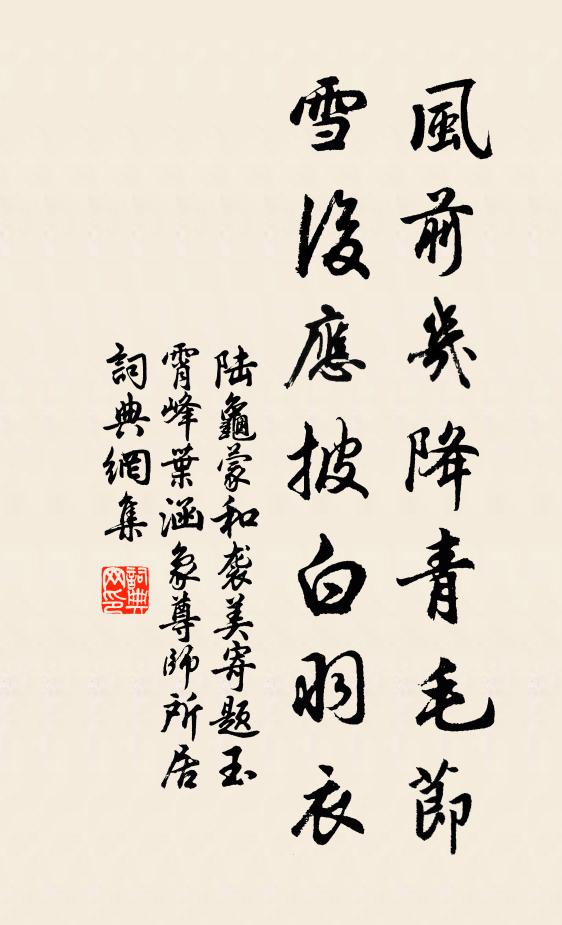 風前幾降青毛節
雪後應披白羽衣
陆龜蒙和袭美寄題玉
霄峰葉涵象尊師所居
詞典網集
詞典
网印